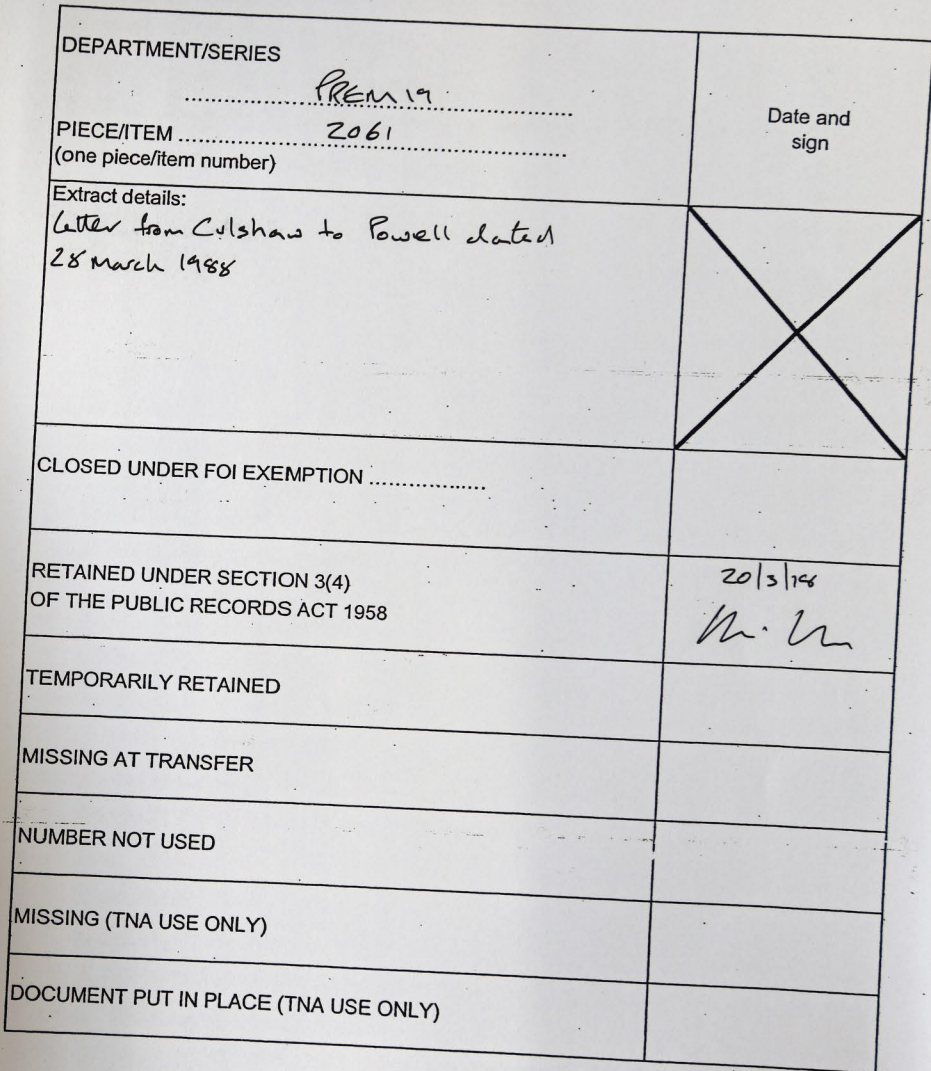 DEPARTMENT/SERIES
PREM 19
Date and
sign
PIECE/ITEM 2061
(one piece/item number)
Extract details:
Letter from Culshaw to Powell dated
28 March 1988
CLOSED UNDER FOI EXEMPTION ..................
RETAINED UNDER SECTION 3(4)
OF THE PUBLIC RECORDS ACT 1958
20/3/18
TEMPORARILY RETAINED
MISSING AT TRANSFER
NUMBER NOT USED
MISSING (TNA USE ONLY)
DOCUMENT PUT IN PLACE (TNA USE ONLY)